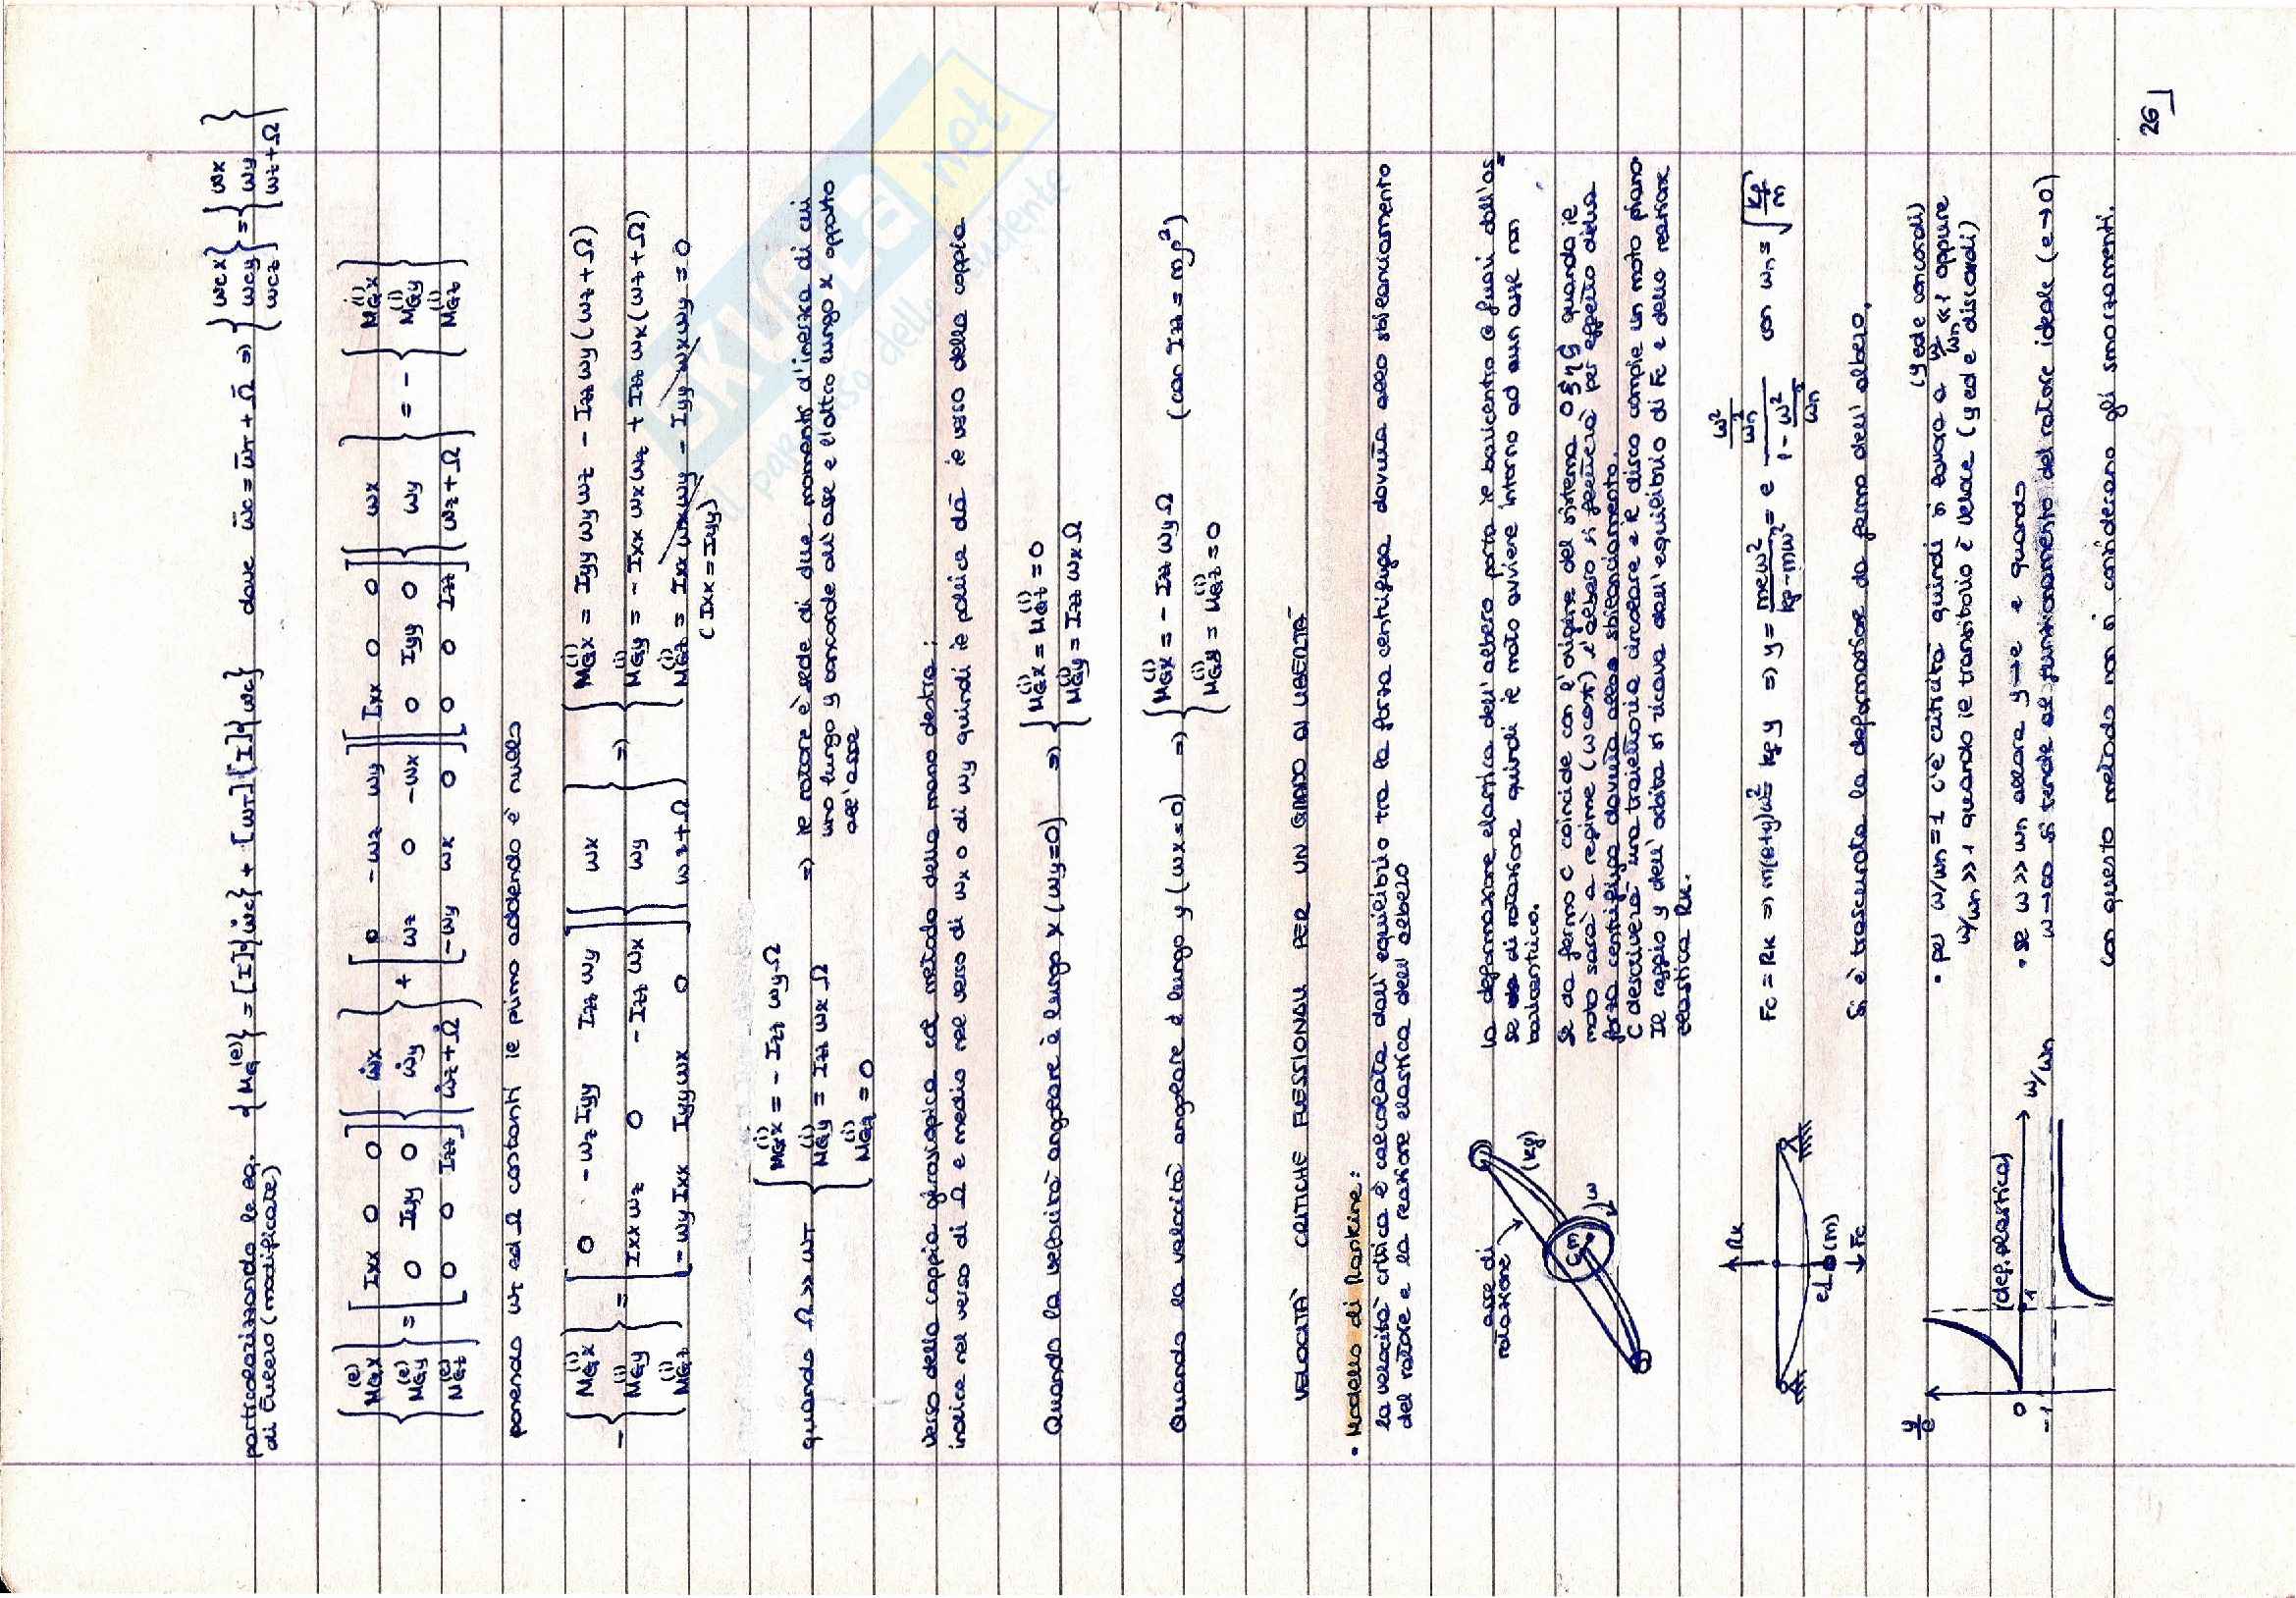 particolarizzando le eq. {M_G^(e)} = [I]{ω̇c} + [ωT][I]{ωc} dove ω̄c = ω̄T + Ω̄ => {ωcx ωcy ωcz} = {ωx ωy ωz+Ω}
di Eulero (modificate)
{M_Gx^(e) M_Gy^(e) M_Gz^(e)} = [Ixx 0 0; 0 Iyy 0; 0 0 Izz] {ω̇x ω̇y ω̇z+Ω̇} + [0 -ωz ωy; ωz 0 -ωx; -ωy ωx 0] [Ixx 0 0; 0 Iyy 0; 0 0 Izz] {ωx ωy ωz+Ω} = - {M_Gx^(i) M_Gy^(i) M_Gz^(i)}
ponendo ωT ed Ω costanti il primo addendo è nullo
- {M_Gx^(i) M_Gy^(i) M_Gz^(i)} = [0 -ωz Iyy Izz ωy; Ixx ωz 0 -Izz ωx; -ωy Ixx Iyy ωx 0] {ωx ωy ωz+Ω} => { M_Gx^(i) = Iyy ωy ωz - Izz ωy (ωz+Ω)
M_Gy^(i) = - Ixx ωx ωz + Izz ωx (ωz+Ω)
M_Gz^(i) = Ixx ωx ωy - Iyy ωx ωy = 0
(Ixx = Iyy)
quando Ω >> ωT { M_Gx^(i) = - Izz ωy Ω
M_Gy^(i) = Izz ωx Ω
M_Gz^(i) = 0
=> il rotore è sede di due momenti d'inerzia di cui
uno lungo y concorde all'asse e l'altro lungo x opposto
all'asse
verso della coppia giroscopica col metodo della mano destra:
indice nel verso di Ω e medio nel verso di ωx o di ωy quindi il pollice dà il verso della coppia
Quando la velocità angolare è lungo x (ωy=0) => { M_Gx^(i) = M_Gz^(i) = 0
M_Gy^(i) = Izz ωx Ω
Quando la velocità angolare è lungo y (ωx=0) => { M_Gx^(i) = - Izz ωy Ω (con Izz = mρ²)
M_Gy^(i) = M_Gz^(i) = 0
VELOCITÀ CRITICHE FLESSIONALI PER UN GRADO DI LIBERTÀ
• Modello di Rankine:
la velocità critica è calcolata dall'equilibrio tra la forza centrifuga dovuta allo sbilanciamento
del rotore e la reazione elastica dell'albero
asse di
rotazione
(kf)
C m
ω
la deformazione elastica dell'albero porta il baricentro G fuori dall'as=
se di rotazione quindi il moto avviene intorno ad un asse non
baricentrico.
Se da fermo C coincide con l'origine del sistema Oξηζ quando il
moto sarà a regime (ω cost) l'albero si fletterà per effetto della
forza centrifuga dovuta allo sbilanciamento.
C descriverà una traiettoria circolare e il disco compie un moto piano.
Il raggio y dell'orbita si ricava dall'equilibrio di Fc e della reazione
elastica Rk.
Rk
e
(m)
Fc
Fc = Rk => m(e+y)ω² = kf y => y = meω²/(kf-mω²) = e (ω²/ωn²)/(1-ω²/ωn²) con ωn = √(kf/m)
Si è trascurata la deformazione da fermo dell'albero.
y/e
0
-1
1
(def. elastica)
ω/ωn
(y ed e concordi)
• per ω/ωn = 1 c'è criticità quindi si lavora a ω/ωn << 1 oppure
ω/ωn >> 1 quando il transitorio è veloce (y ed e discordi)
• se ω >> ωn allora y → -e e quando
ω→∞ si tende al funzionamento del rotore ideale (e→0)
con questo metodo non si considerano gli smorzamenti.
26
SKUOLA.net
il paradiso dello studente